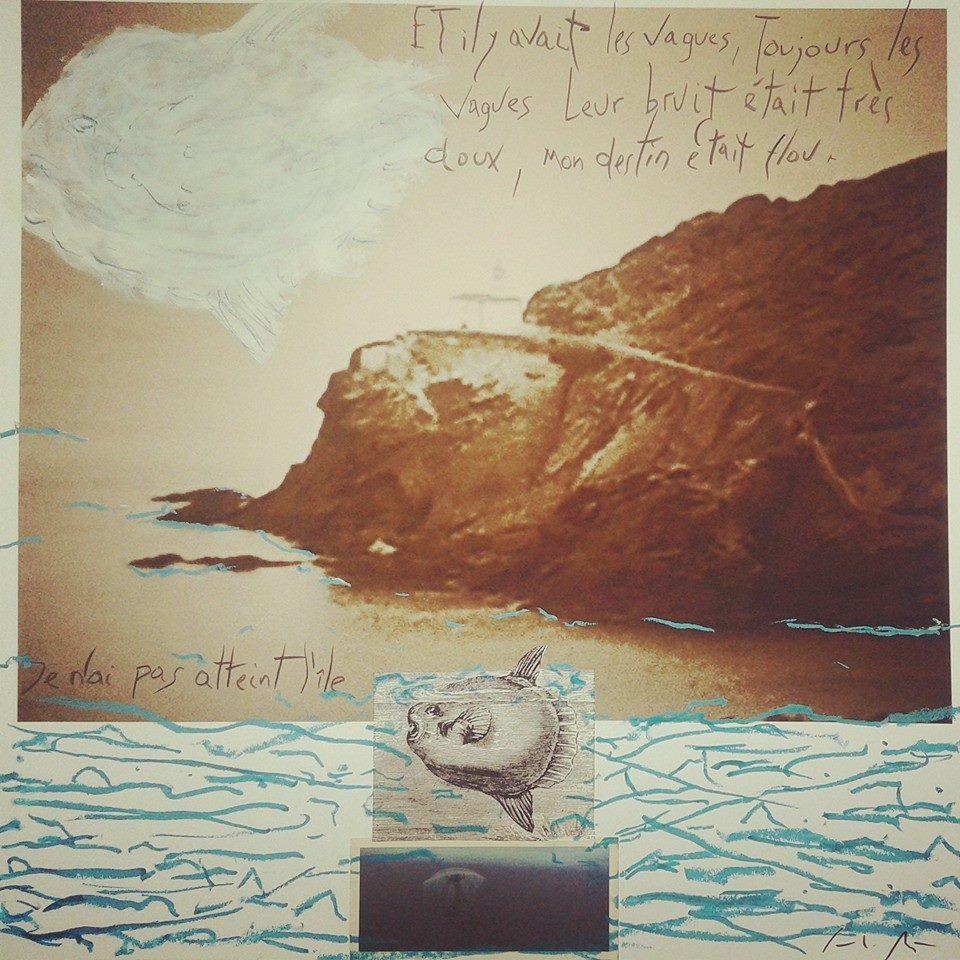 ET il y avait les vagues, Toujours les
vagues Leur bruit était très
doux, mon destin était flou.
Je n'ai pas atteint l'île